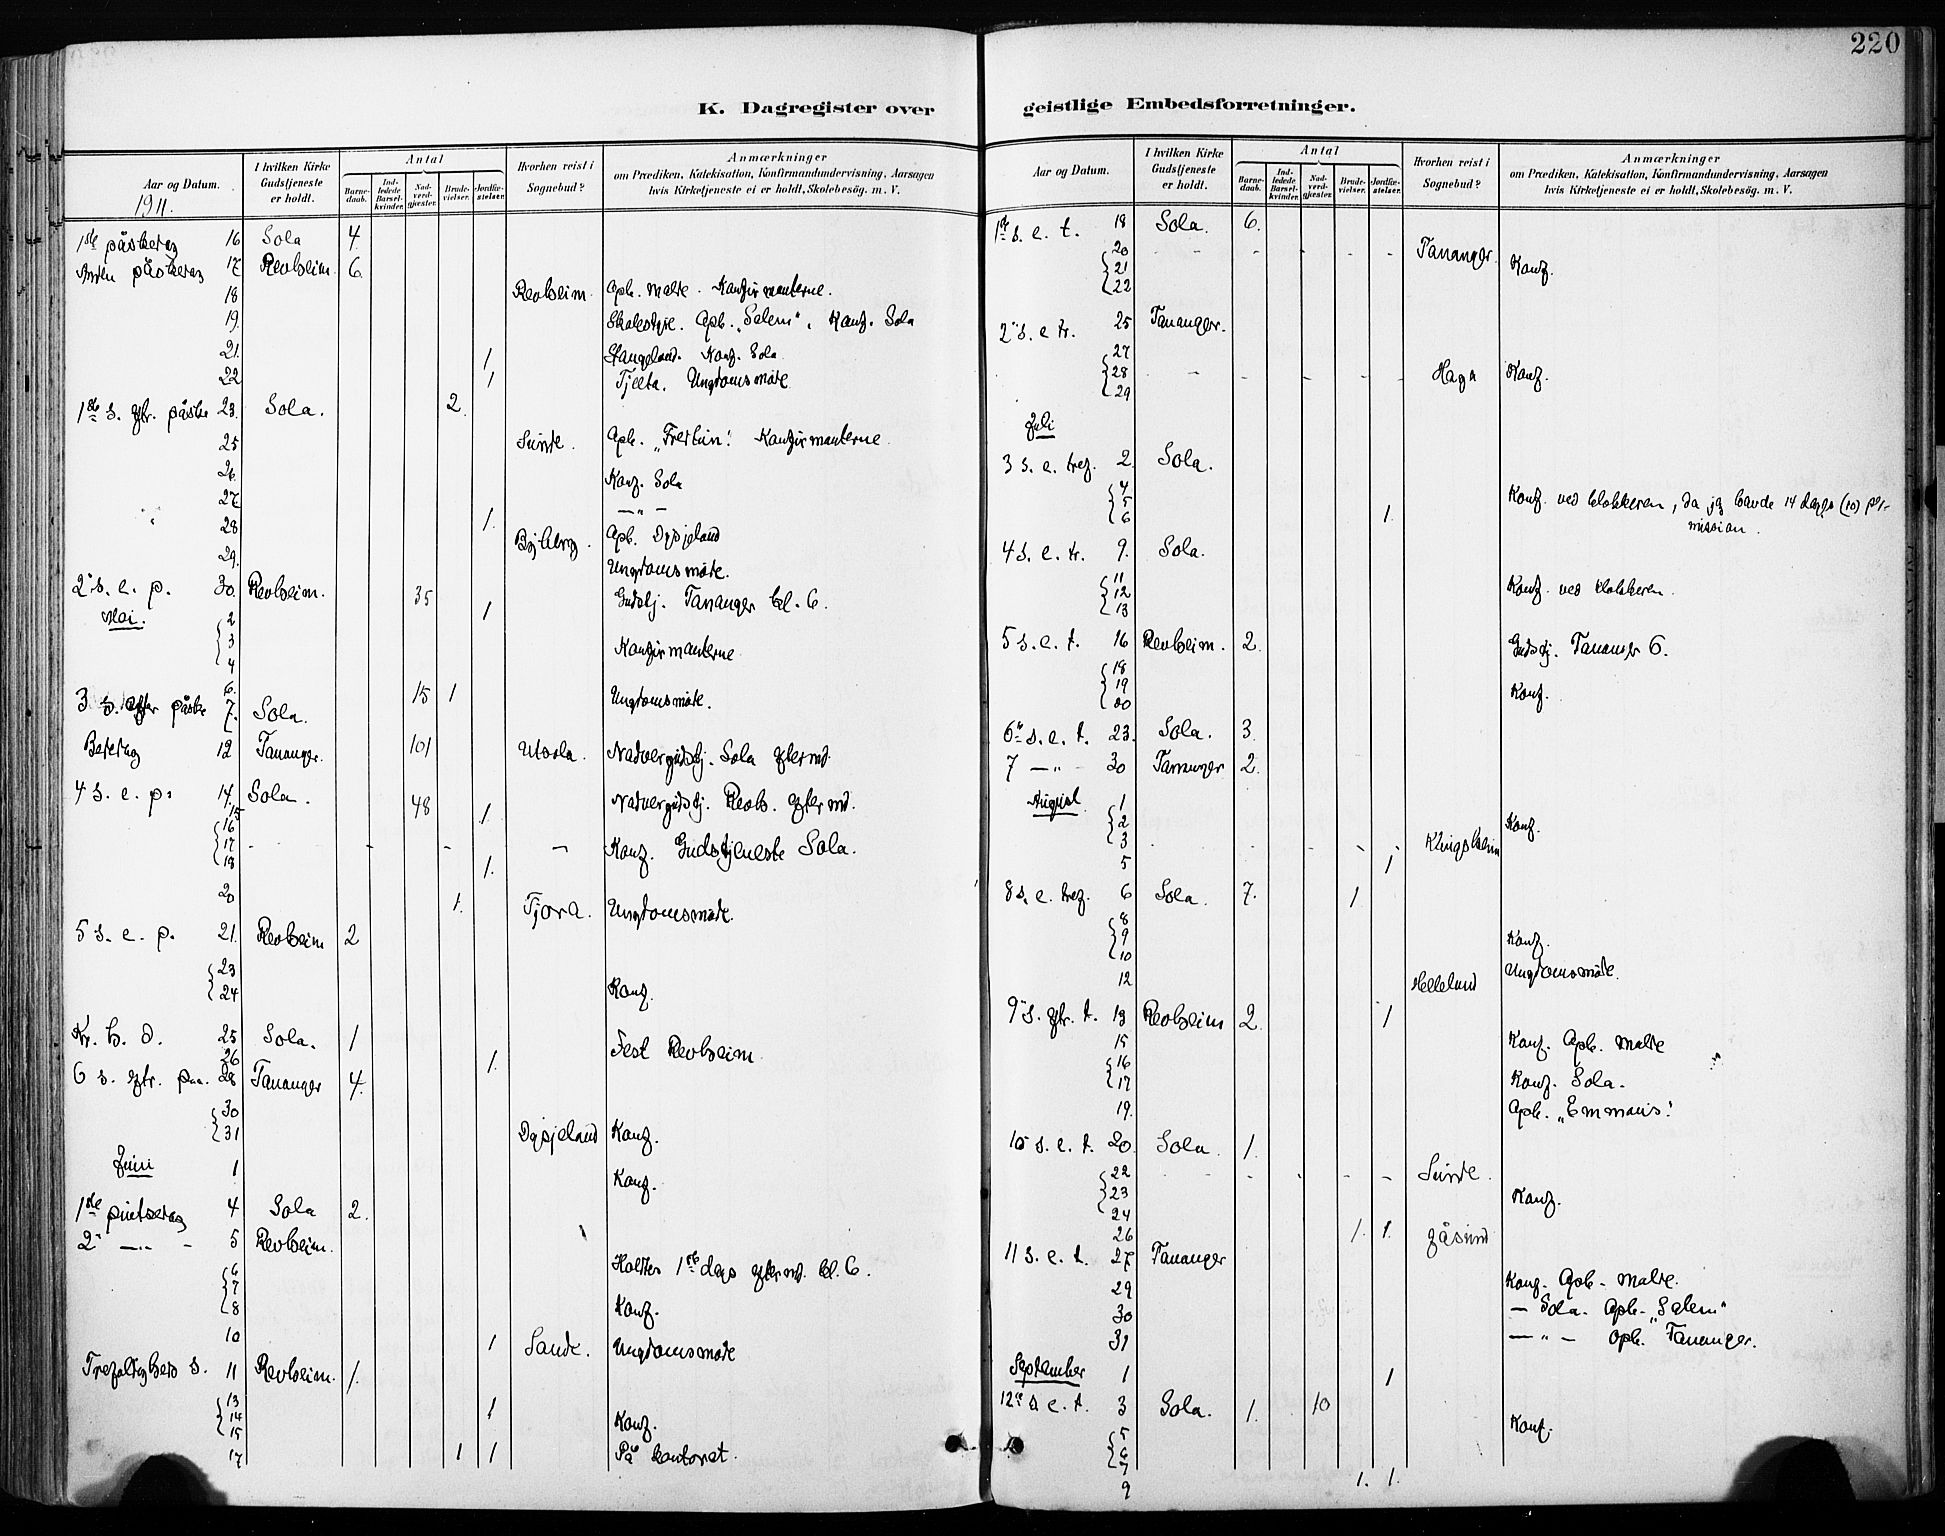 220
K. Dagregister over
Aar og Datum.
1911.
I hvilken Kirke Gudstjeneste er holdt.
Antal
Barne-daab.
Ind-ledede Barsel-kvinder.
Nad-verd-gjæster.
Brude-vielser.
Jordfæ-stelser.
Hvorhen reist i Sognebud?
Anmærkninger
om Prædiken, Katekisation, Konfirmandundervisning, Aarsagen
hvis Kirketjeneste ei er holdt, Skolebesög. m. V.
1ste påskedag 16 Sola 4.
Anden påskedag 17 Revheim. 6.
18 Revheim. Opb. Malde. Konfirmanterne.
19. Skolestyre. Opb. „Salem“. Konf. Sola
21. 1 Stangeland. Konf. Sola
22 1 Tjelta. Ungdomsmöte
1ste s. eftr. påske 23. Sola. 2
25 Sunde. Opb. „Fredtun“. Konfirmanterne.
26. Konf. Sola
27. — „ —
28 1. Byberg. Opb. Dysjeland
29. Ungdomsmöte.
2. s. e. p. 30. Revheim. 35 1 Gudstj. Tananger kl. 6.
Mai.
2
3
4 Konfirmanterne
6. 15 1 Ungdomsmöte.
3 s. efter påske 7. Sola.
Bededag 12 Tananger. 101 Utsola. Nadvergudstj. Sola eftermd.
4 s. e. p. 14. Sola. 48 1. Nadvergudstj. Revh. efter md.
15
16
17
18 — 1. Konf. Gudstjeneste Sola.
20 1. Tjora. Ungdomsmöte.
5 s. e. p. 21. Revheim 2
23
24 Konf.
Kr. h. d. 25 Sola. 1 Fest Revheim
26 1.
6 s. eftr. paa. 28 Tananger 4.
30
31 Dysjeland Konf.
Juni 1 Konf.
1ste pintsedag 4 Sola 2.
2. — „ — 5 Revheim. Holdtes 1ste dags efterm. kl. 6.
6
7
8 Konf.
10 1 Sande. Ungdomsmöte
Trefoldigheds s. 11 Revheim. 1.
13
14
15 1 Konf.
17 1 1 På kontoret.
geistlige Embedsforretninger.
Aar og Datum.
I hvilken Kirke Gudstjeneste er holdt.
Antal
Barne-daab.
Ind-ledede Barsel-kvinder.
Nad-verd-gjæster.
Brude-vielser.
Jordfæ-stelser.
Hvorhen reist i Sognebud?
Anmærkninger
om Prædiken, Katekisation, Konfirmandundervisning, Aarsagen
hvis Kirketjeneste ei er holdt, Skolebesög. m. V.
1ste s. e. t. 18 Sola. 6.
20
21
22 Tananger. Konf.
2. s. e tr. 25 Tananger.
27
28
29 Haga Konf.
Juli
3 s. e. tref. 2. Sola.
4
5
6 1. Konf. ved klokkeren, da jeg havde 14 dages (10) per-
mission.
4 s. e. tr. 9. Sola.
11
12
13 Konf. ved klokkeren.
5 s. e. t. 16 Revheim. 2. Gudstj. Tananger 6.
18
19
20 Konf.
6. s. e. t. 23. Sola. 3.
7 — „ — 30 Tananger 2.
August
1
2
3 Klingsheim Konf.
5 1
8 s. e. tref. 6 Sola. 7. 1
8
9
10 Konf.
12 Helleland Ungdomsmöte.
9. s. eftr. t. 13 Revheim 2. 1
15 Konf. Opb. Malde
16
17 Konf. Sola.
19. Opb. „Emmaus“.
10 s. e. t. 20. Sola. 1.
22
23
24 Sunde. Konf.
26 1. 1. Gåsund
11 s. e. t. 27 Tananger
29 Konf. Opb. Malde.
30 — Sola. Opb. „Salem“
31 — „ — Opb. Tananger.
September 1 1
12te s e. t. 3 Sola. 1. 10
5
6
7 Konf.
9 1. 1.